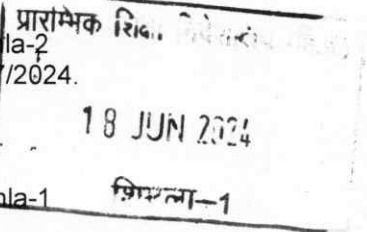 प्रारम्भिक
la-2
/2024.
18 JUN 2024
la-1
शिमला-1